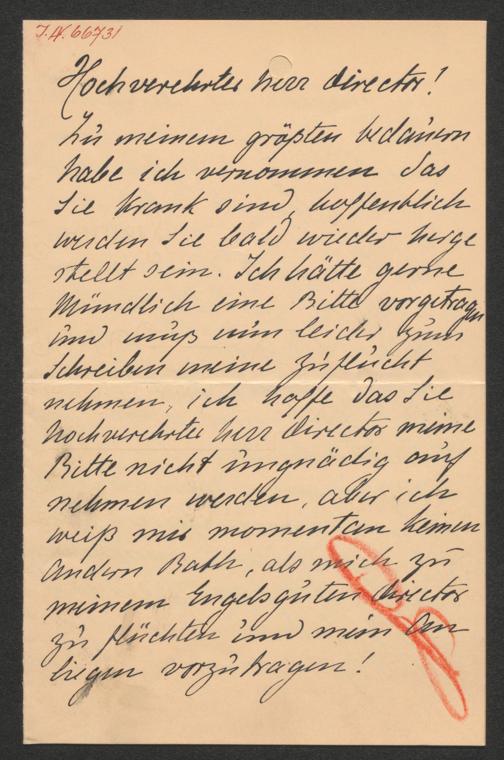 I.N. 66731
Hochverehrter herr director!
Zu meinem größten bedauern
habe ich vernommen das
Sie krank sind, hoffentlich
werden Sie bald wieder herge
stellt sein. Ich hätte gerne
Mündlich eine Bitte vorgetragen
und muß nun leider zum
Schreiben meine zuflucht
nehmen, ich hoffe das Sie
hochverehrter herr director meine
Bitte nicht ungnädig auf
nehmen werden, aber ich
weiß mir momentan keinen
andern Rath, als mich zu
meinem Engelsguten director
zu flüchten und mein An
liegen vorzutragen!